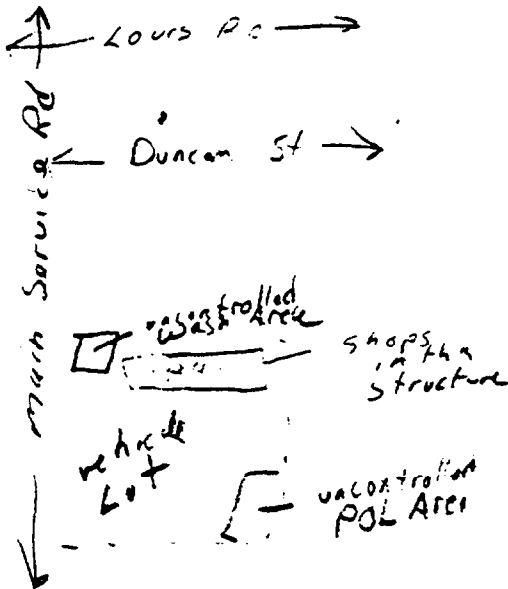 Lours Rd
Main Service Rd
Duncan St
uncontrolled
Wash Area
shops
in the
structure
vehicle
Lot
uncontrolled
POL Area